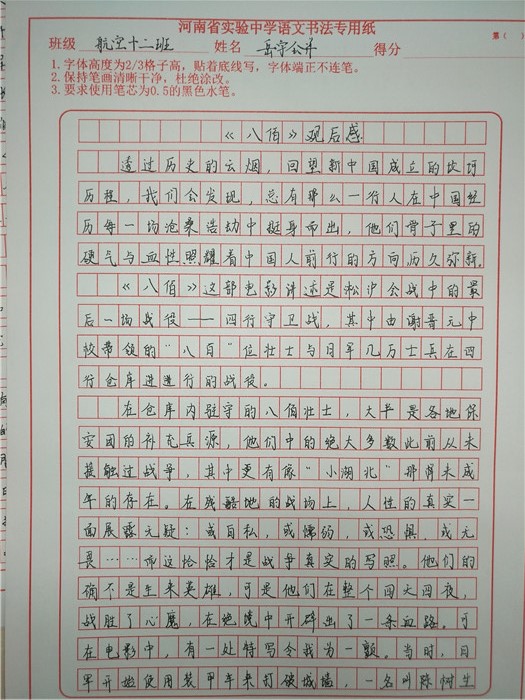 河南省实验中学语文书法专用纸
第( )
班级 航空十二班 姓名 岳宇公并 得分
1.字体高度为2/3格子高,贴着底线写,字体端正不连笔。
2.保持笔画清晰干净,杜绝涂改。
3.要求使用笔芯为0.5的黑色水笔。
《八佰》观后感
透过历史的云烟,回望新中国成立的坎坷
历程,我们会发现,总有那么一行人在中国经
历每一场沧桑浩劫中挺身而出,他们骨子里的
硬气与血性照耀着中国人前行的方向历久弥新。
《八佰》这部电影讲述是淞沪会战中的最
后一场战役——四行守卫战,其中由谢晋元中
校带领的"八百"位壮士与日军几万士兵在四
行仓库进进行的战役。
在仓库内驻守的八佰壮士,大半是各地保
安团的补充兵源,他们中的绝大多数此前从未
接触过战争,其中更有像"小湖北"那样未成
年的存在。在残酷地的战场上,人性的真实一
面展露无疑:或自私,或懦弱,或恐惧,或无
畏……而这恰恰才是战争真实的写照。他们的
确不是生来英雄,可是他们在整个四天四夜,
战胜了心魔,在绝境中开辟出了一条血路。可
在电影中,有一处特写令我为一颤。当时,日
军开始使用装甲车来打破城墙,一名叫陈树生